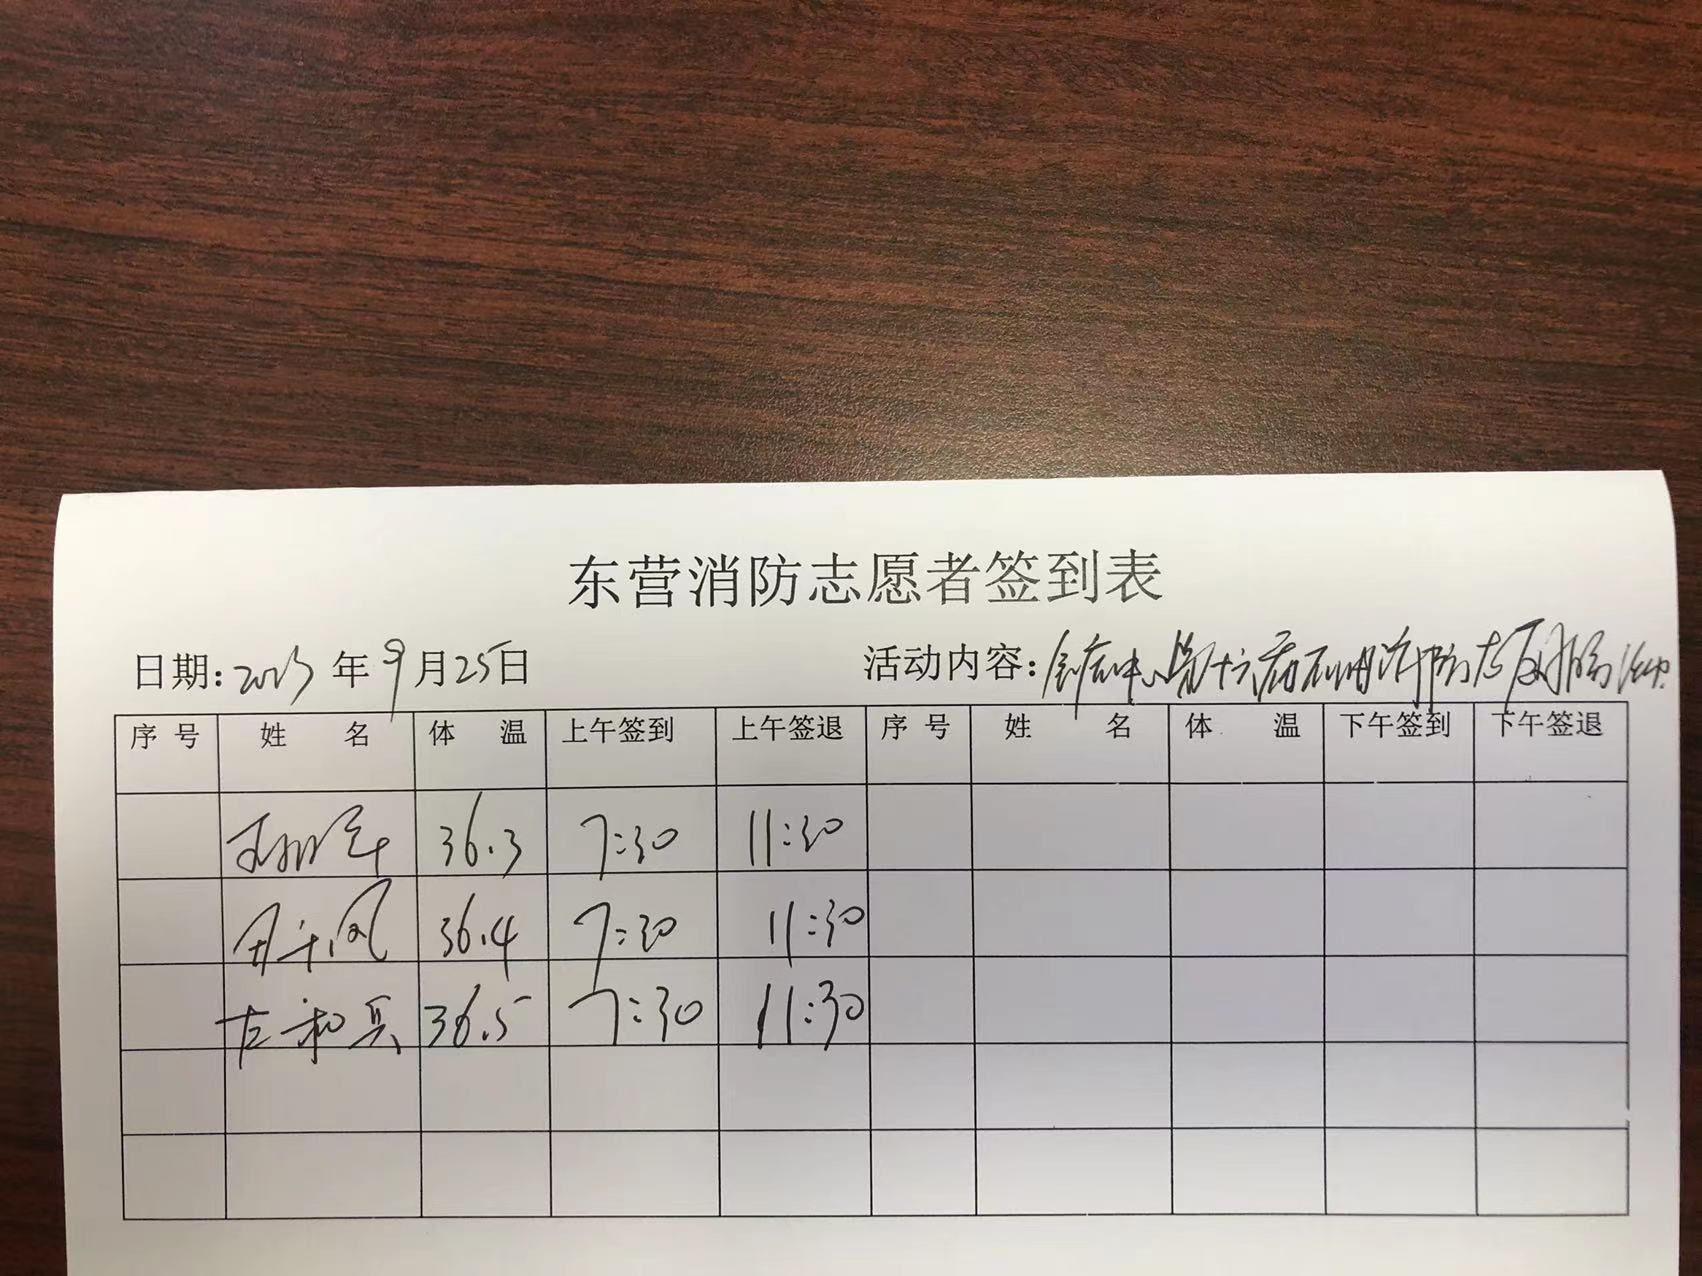 东营消防志愿者签到表
日期: 2023 年 9 月 25 日 活动内容:
序 号 姓 名 体 温 上午签到 上午签退 序 号 姓 名 体 温 下午签到 下午签退
36.3 7:30 11:30
36.4 7:30 11:30
左和兵 36.5 7:30 11:30